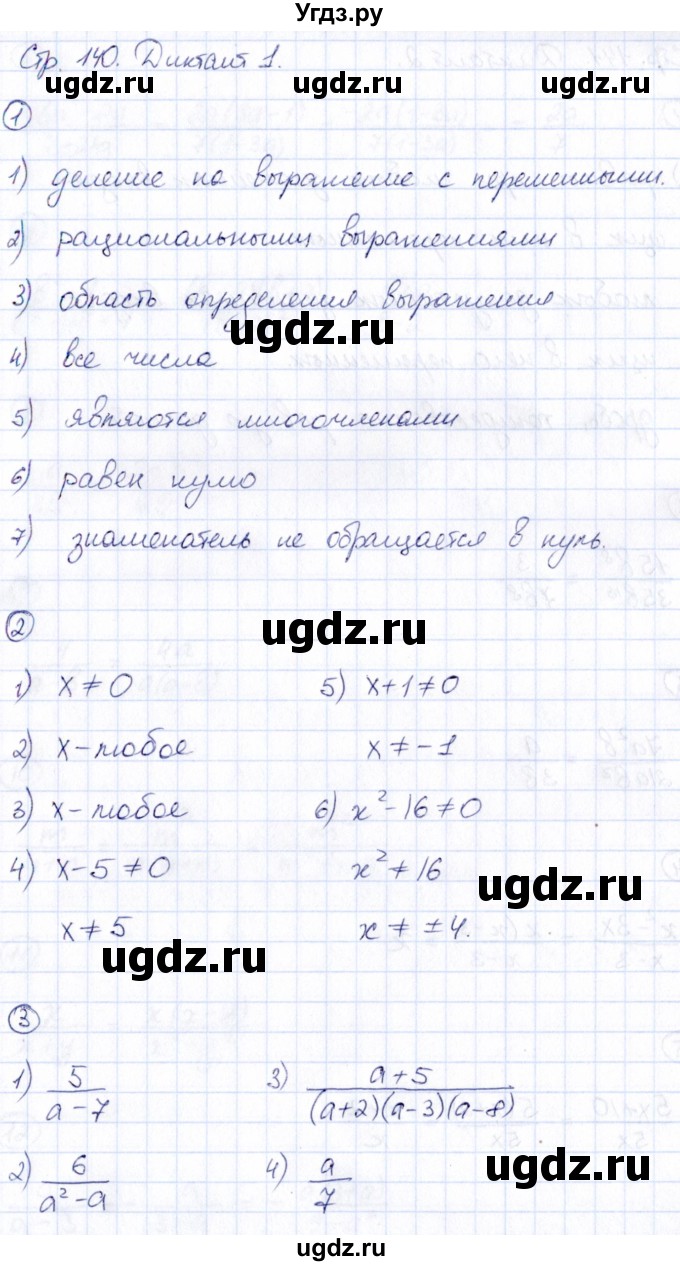 Угдз.ру
Стр. 140. Диктант 1.
ugdz.ru ugdz.ru ugdz.ru
1
1) деление на выражение с переменными.
2) рациональными выражениями
3) область определения выражения
ugdz.ru
4) все числа
5) являются многочленами
6) равен нулю
7) знаменатель не обращается в нуль.
2
ugdz.ru
1) x ≠ 0
2) x - любое
3) x - любое
4) x - 5 ≠ 0
x ≠ 5
5) x + 1 ≠ 0
x ≠ -1
6) x² - 16 ≠ 0
x² ≠ 16
x ≠ ± 4.
ugdz.ru
ugdz.ru
3
1) 5/(a - 7)
2) 6/(a² - a)
3) (a + 5)/((a+2)(a-3)(a-8))
4) a/7
ugdz.ru
ugdz.ru